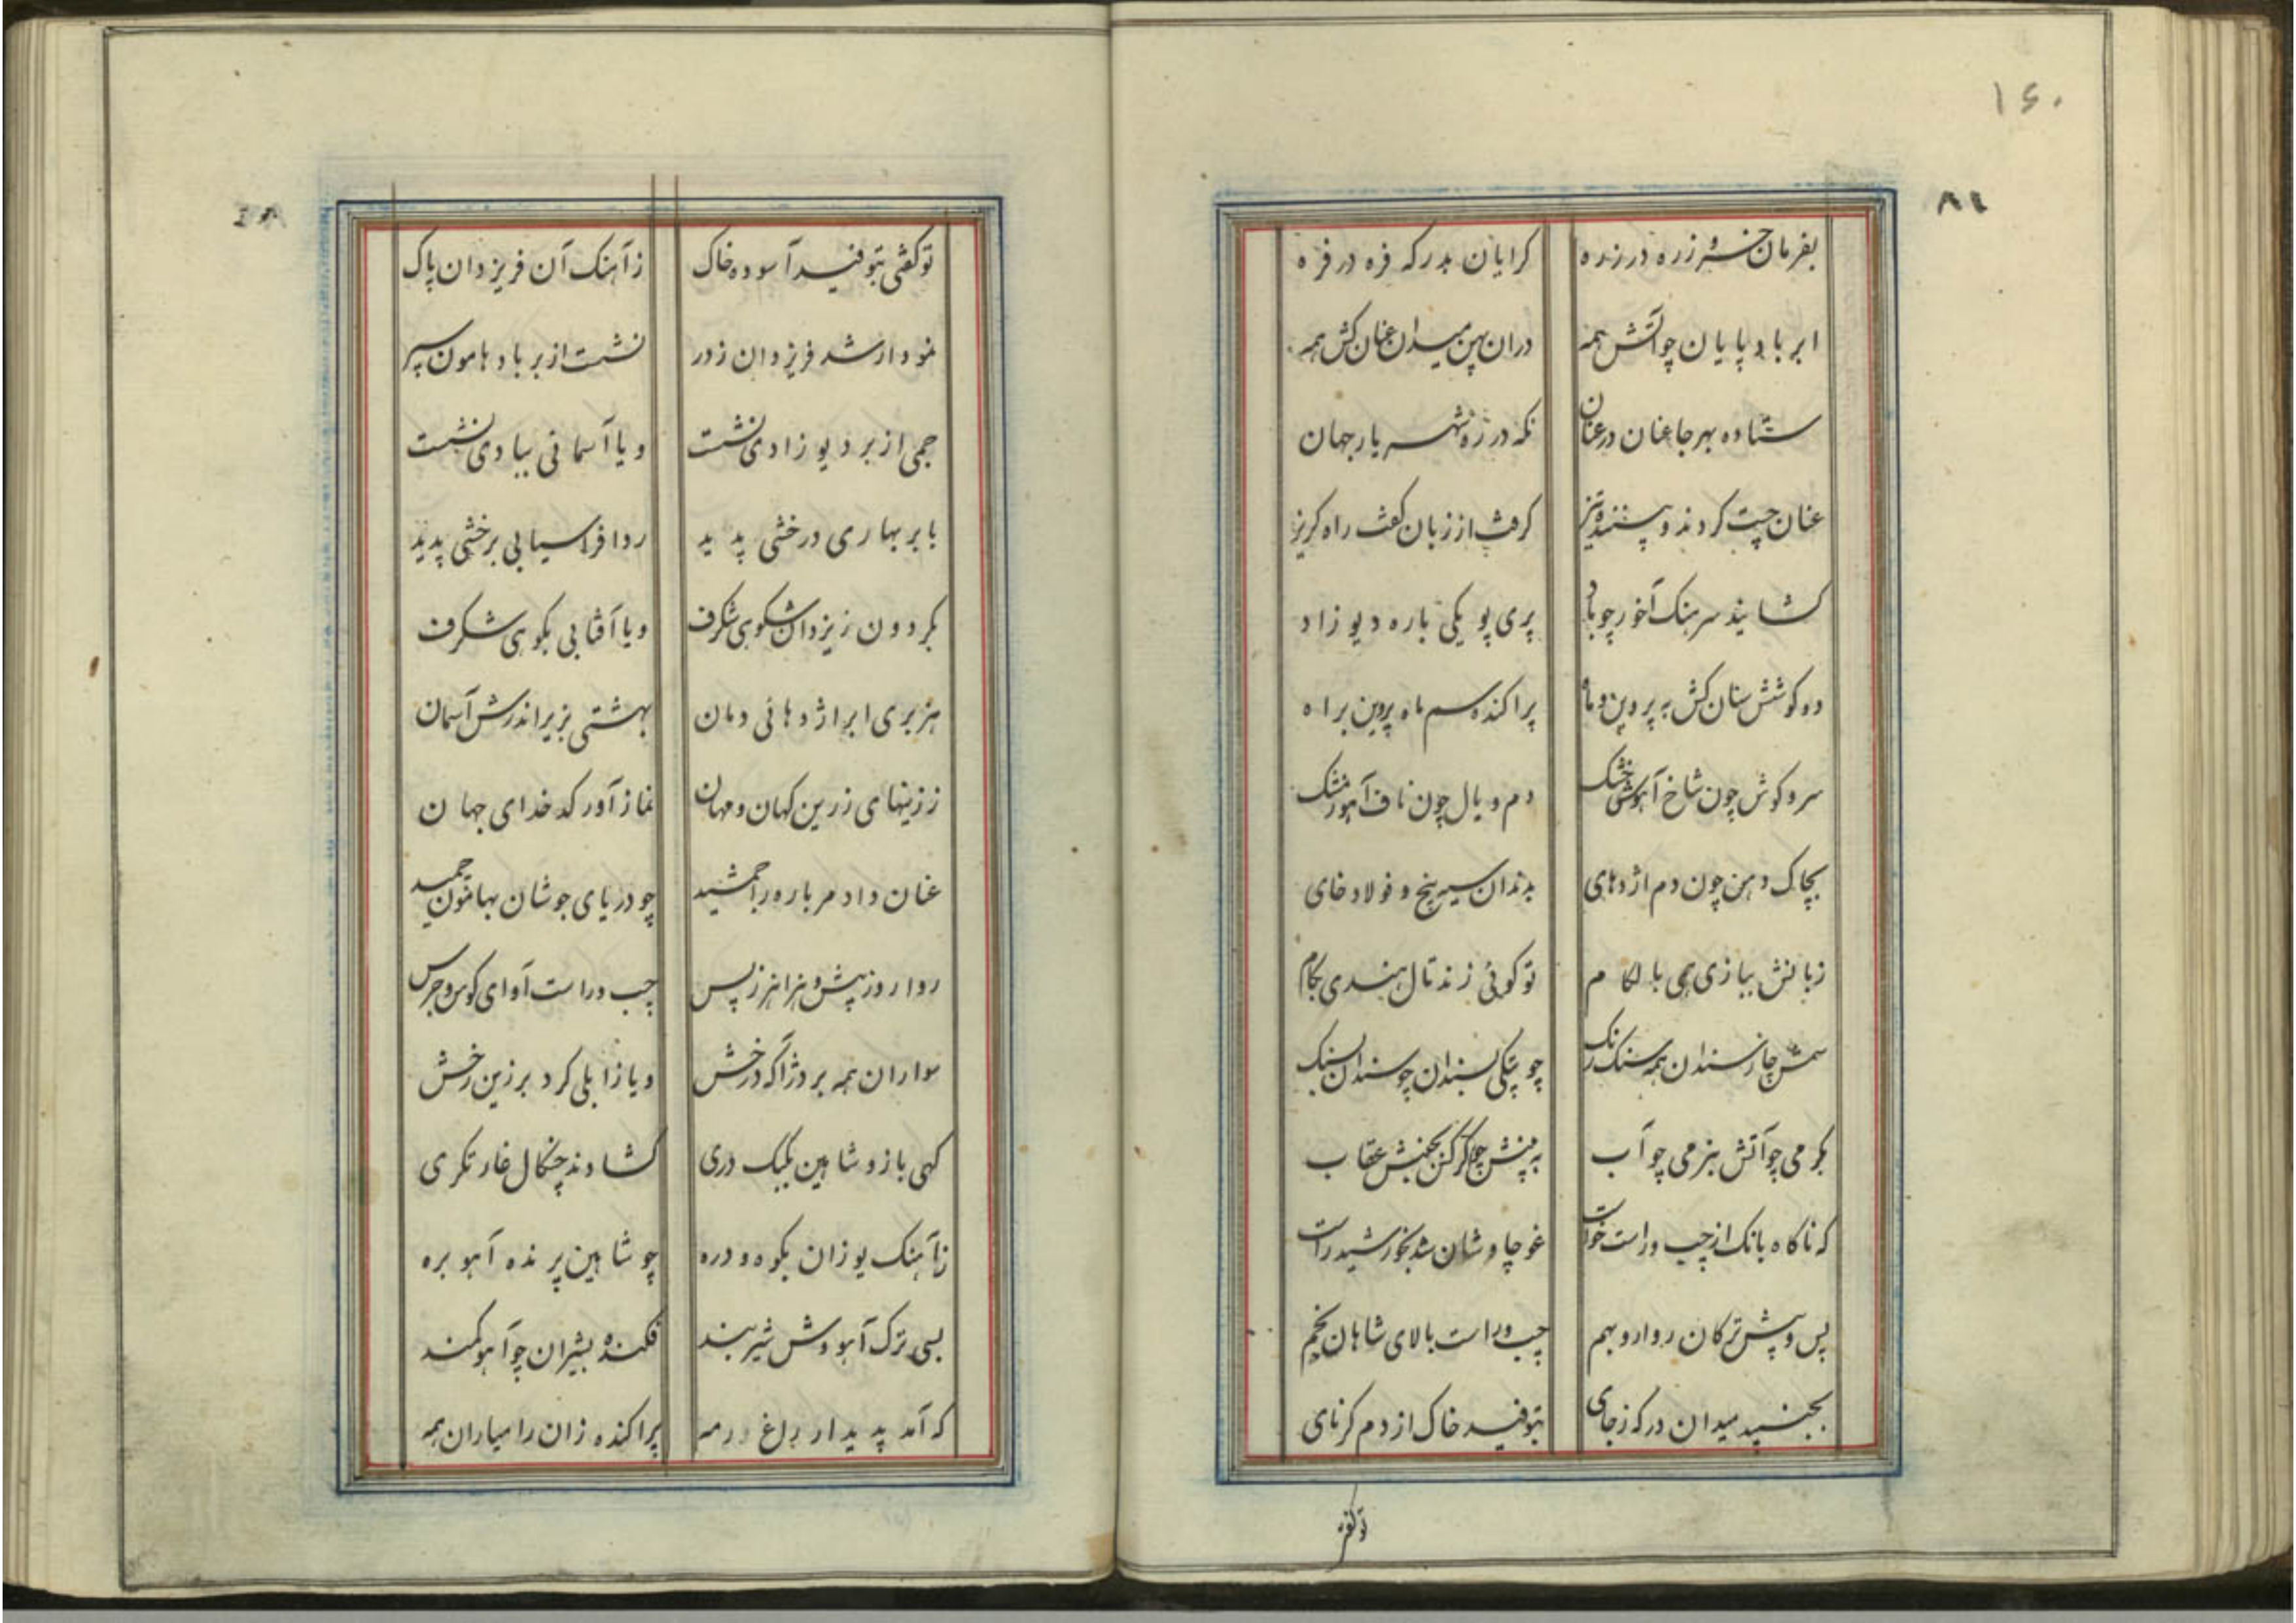 ۱۶۰
۸۱
بفرمان خسرو زره در زده گرایان بدرکه فره در فره
ابر باد پایان چو آتش همه در ان پهن میدان عنان کش همه
ستاده بهر جا عنان در عنان نکه در ره شهریار جهان
عنان چپت کردند و پستند تیز کرفت از زبان کفت راه کریز
کشانید سرهنک آخور چو باد پری پویکی باره دیو زاد
دو کوشش سنان کش به پروین و ماه پراکنده سم ماه پروین براه
سرو کوش چون شاخ آهوش خشک دم و یال چون ناف آهو ز مشک
بچاک دهن چون دم اژدهای بدندان سیریخ و فولاد خای
زبانش ببازی همی با لکام تو کوئی زند تال هندی بکام
سمش چار سندان همه سنک رنک چو پتکی بسندان چو سندان بسنک
بکرمی چو آتش بنرمی چو آب به پنش چو کرکس بجنبش عقاب
که ناکاه بانک از چپ و راست خواست غو چاوشان شد بخورشید راست
پس و پیش ترکان روارو بهم چب و راست بالای شاهان بخم
بجنبید میدان درکه ز جای بتوفید خاک از دم کرنای
تو کفتی
توکفتی بتوفید آسوده خاک ز آهنک آن فر یزدان پاک
نمودار شد فر یزدان ز در نشست از بر باد هامون سپر
جمی از بر دیو زادی نشست و یا آسمانی ببادی نشست
بابر بهاری درخشی پدید ردا فراسیابی برخشی پدید
بکردون ز یزدان شکوهی شکرف و یا آفتابی بکوهی شکرف
هزبری ابر اژدهائی دمان بهشتی بزیر اندرش آسمان
ز زینهای زرین کهان و مهان نماز آور کدخدای جهان
عنان داد مر باره را جمشید چو دریای جوشان بهامون چمید
روا رو ز پیش و هزاهز ز پس چب و راست آوای کوس و جرس
سواران همه بر دژاکه درخش و یا زابلی کرد بر زین رخش
کهی باز و شاهین بکبک دری کشادند چنکال غارتکری
ز آهنک یوزان بکوه و دره چو شاهین پرنده آهو بره
بسی ترک آهو وش شیر بند فکنده بشیران چو آهو کمند
که آمد پدیدار راغ و رمه پراکنده زان رامیاران همه